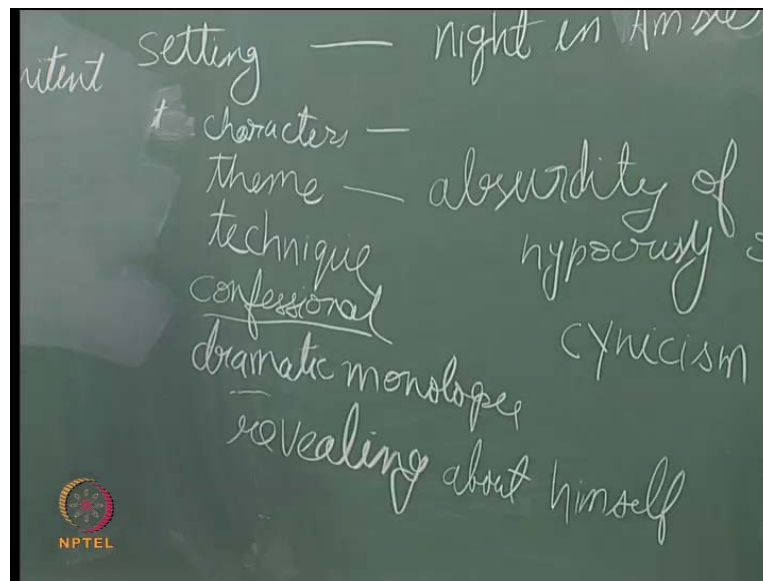 setting — night in Amste
nitent
characters —
theme — absurdity of
technique
hypocrisy
confessional
cynicism
dramatic monologue
revealing about himself
NPTEL